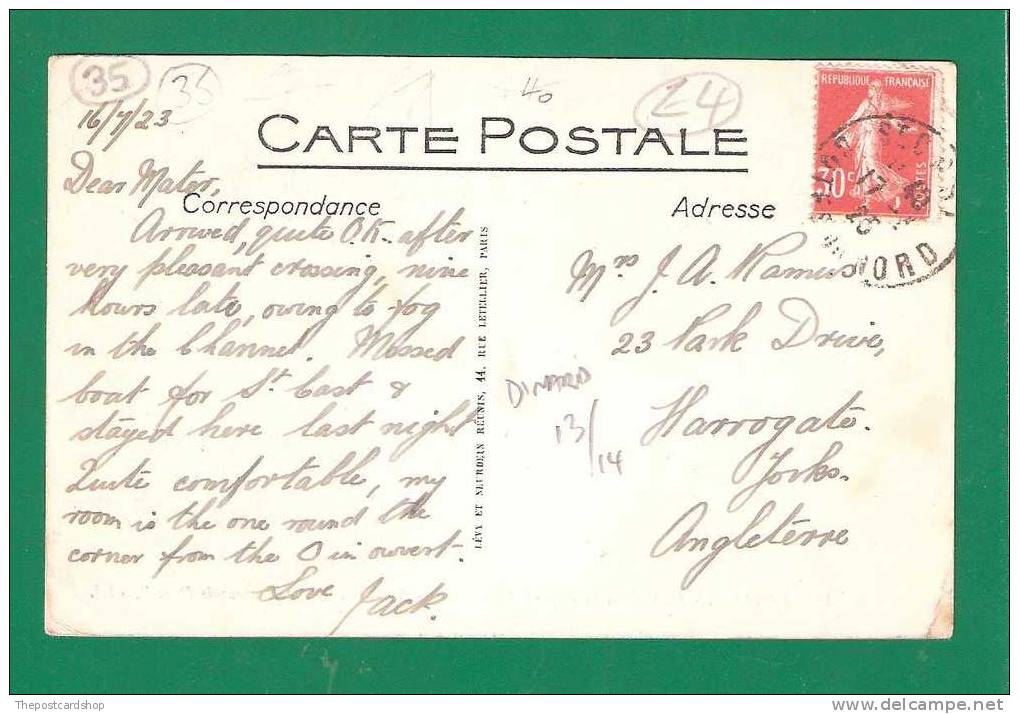 35
35
40
£4
16/7/23
CARTE POSTALE
RÉPUBLIQUE FRANÇAISE
30 c
POSTES
17
23
NORD
Correspondance
Adresse
Dear Mater,
Arrived, quite O.K. after
very pleasant crossing, nine
hours late, owing to fog
in the Channel. Missed
boat for St Cast &
stayed here last night
Quite comfortable, my
room is the one round the
corner from the O in ouvert.
Love
Jack.
LÉVY ET NEURDEIN RÉUNIS, 44, RUE LETELLIER, PARIS
Mrs J. A. Ramus
23 Park Drive,
Harrogate.
Yorks.
Angleterre
DINARD
13/14
Thepostcardshop
delcampe.net